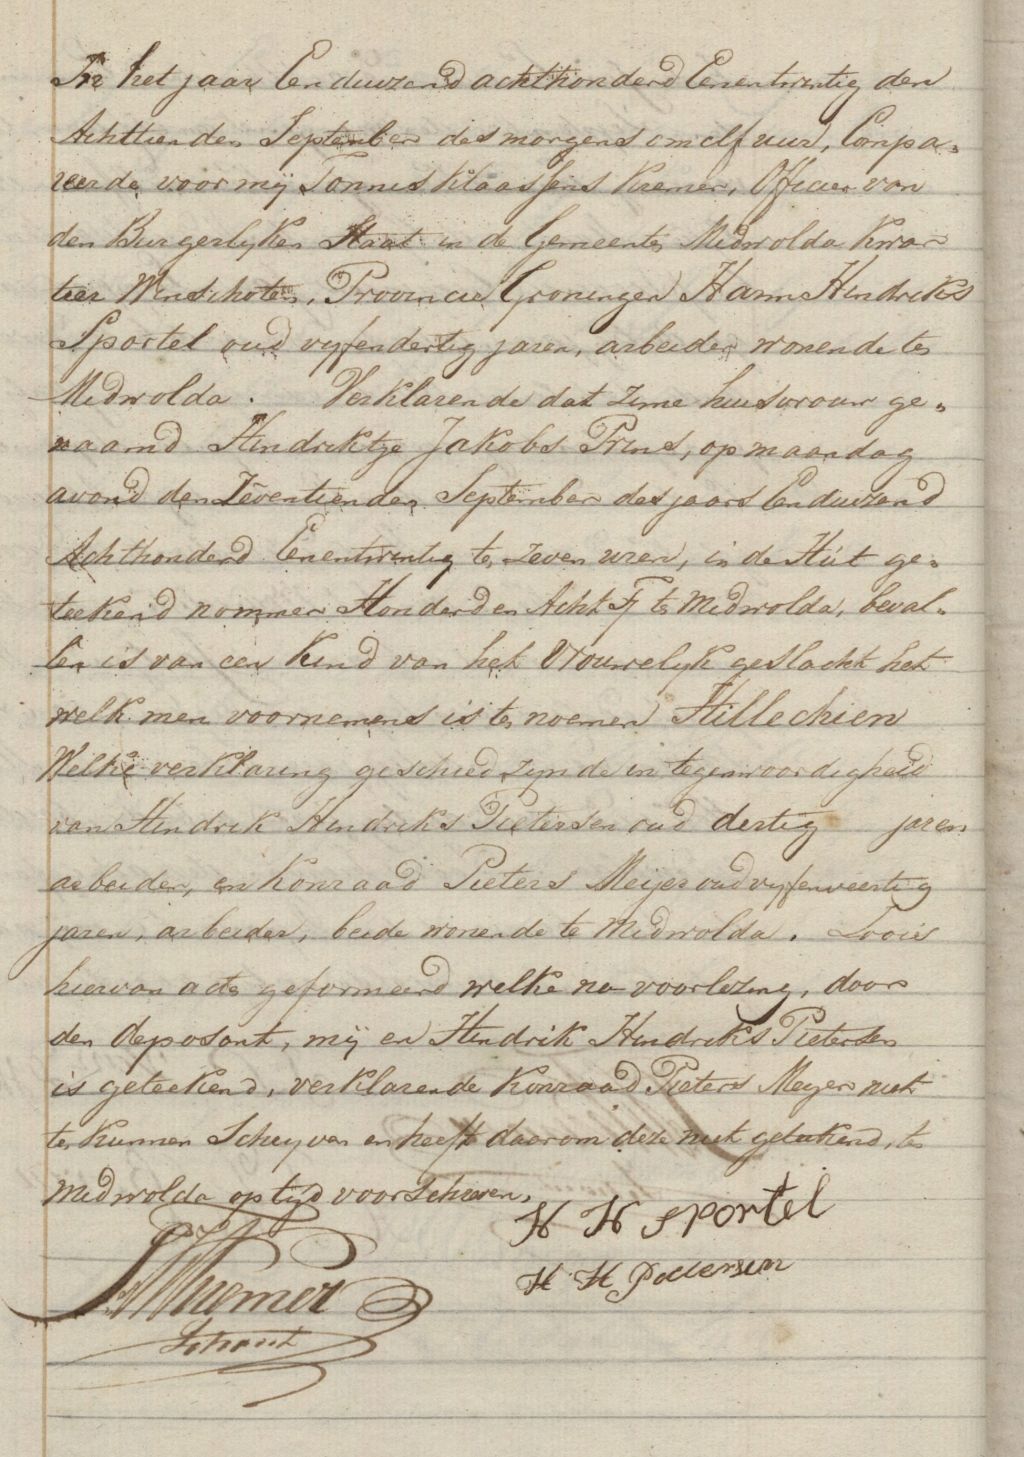 In het jaar Enduizend achthonderd Enentwintig den
Achttienden September des morgens om elf uur, Compa=
reerde voor mij Tonnis Klaassens Kremer, Officier van
den Burgerlyken Staat in de Gemeente Midwolda Kwar
tier Winschoten, Provincie Groningen Harm Hendriks
Sportel oud vyfendertig jaren, arbeider wonende te
Midwolda. Verklarende dat zyne huisvrouw ge=
naamd Hindriktje Jakobs Prins, op maandag
avond den Zeventienden September des jaars Enduizend
Achthonderd Enentwintig te zeven uren, in de Hut ge=
teekend nommer Honderd en Acht F te Midwolda, beval=
len is van een Kind van het Vrouwelyk geslacht het
welk men voornemens is te noemen Hillechien
Welke verklaring geschied zynde in tegenwoordigheid
van Hindrik Hindriks Pietersen oud dertig jaren
arbeider, en Konraad Pieters Meijer oud vyfenveertig
jaren, arbeider, beide wonende te Midwolda. Is ois
hiervan acte geformeerd welke na voorlezing, door
den deposant, mij en Hindrik Hindriks Pietersen
is geteekend, verklarende Konraad Pieters Meyer niet
te kunnen Schryven en heeft daarom deze niet geteekend, te
Midwolda op tyd voorschreven.
H H Sportel
H H Pietersen
TK Kremer
Schout